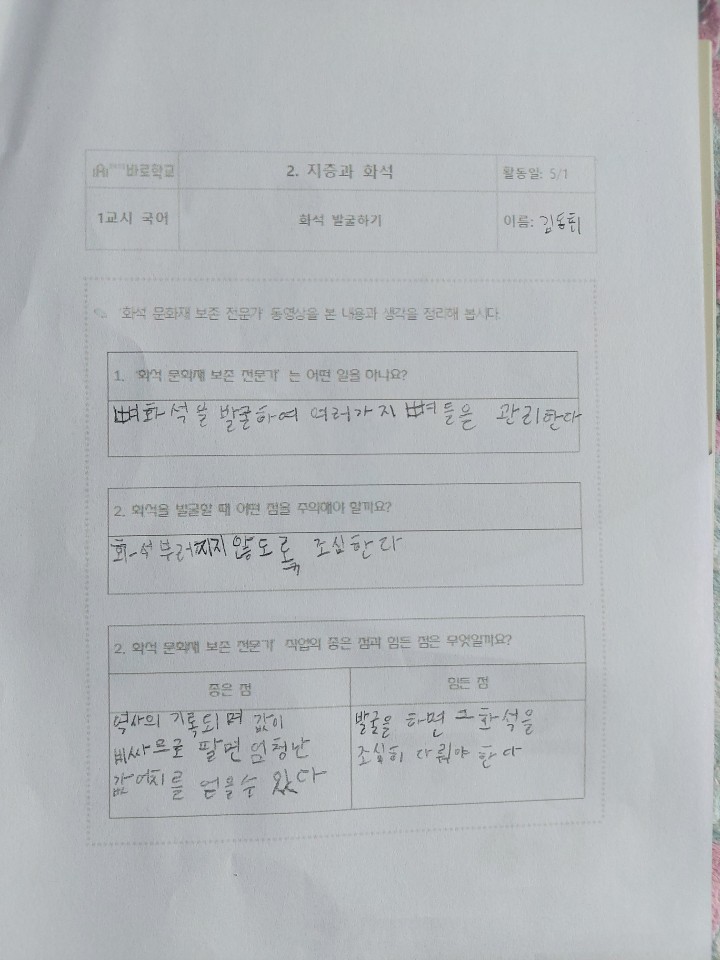 바로학교
2. 지층과 화석
활동일: 5/1
1교시 국어
화석 발굴하기
이름: 김동휘
'화석 문화재 보존 전문가' 동영상을 본 내용과 생각을 정리해 봅시다.
1. '화석 문화재 보존 전문가' 는 어떤 일을 하나요?
뼈화석을 발굴하여 여러가지 뼈들은 관리한다
2. 화석을 발굴할 때 어떤 점을 주의해야 할까요?
화석 부러지지 않도록 조심한다
2. 화석 문화재 보존 전문가' 직업의 좋은 점과 힘든 점은 무엇일까요?
좋은 점
힘든 점
역사의 기록되며 값이
비싸므로 팔면 엄청난
값어치를 얻을수 있다
발굴을 하면 그화석을
조심히 다뤄야 한다